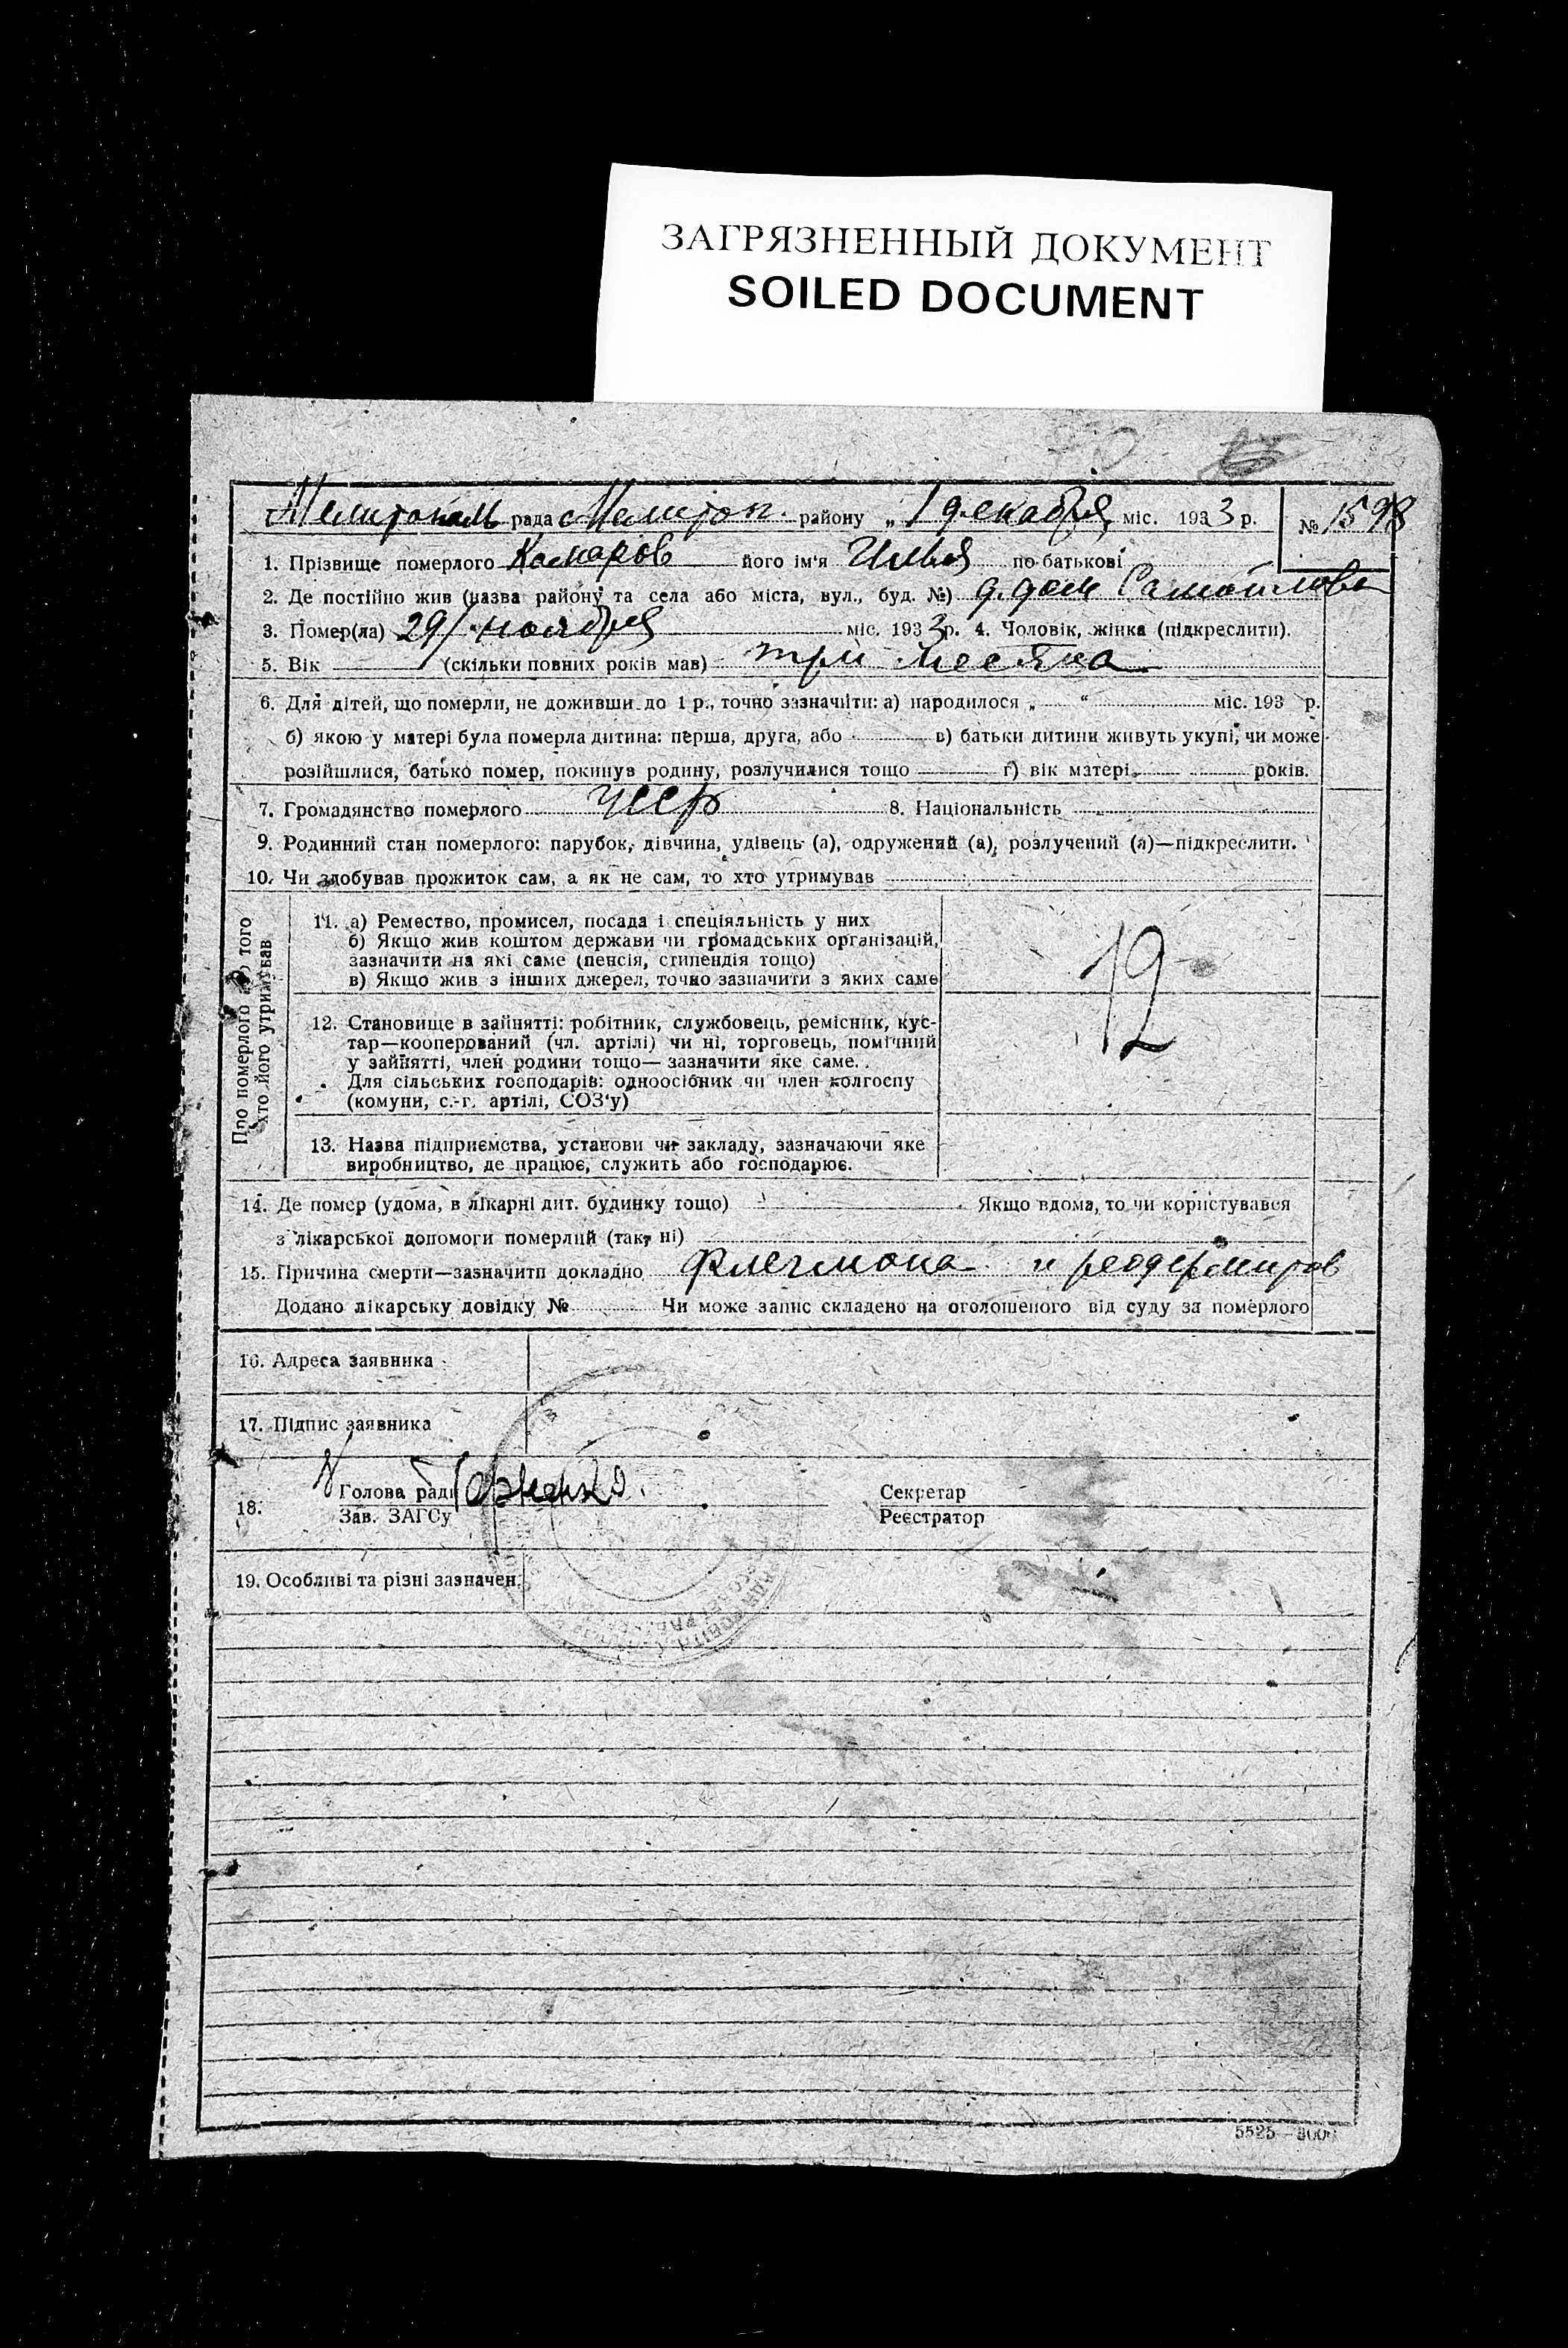 ЗАГРЯЗНЕННЫЙ ДОКУМЕНТ
SOILED DOCUMENT
Мелитополь рада Мелитоп. району „ 1 декабря міс. 1933 р. № 1598
1. Прізвище померлого Комаров його ім'я Илья по батькові
2. Де постійно жив (назва району та села або міста, вул., буд. №) д. дом Самойлова
3. Помер(ла) 29/ ноября міс. 1933 р. 4. Чоловік, жінка (підкреслити).
5. Вік (скільки повних років мав) три месяца
6. Для дітей, що померли, не доживши до 1 р., точно зазначіти: а) народилося „ “ міс. 193 р.
б) якою у матері була померла дитина: перша, друга, або в) батьки дитини живуть укупі, чи може
розійшлися, батько помер, покинув родину, розлучилися тощо г) вік матері років.
7. Громадянство померлого УССР 8. Національність
9. Родинний стан померлого: парубок, дівчина, удівець (а), одружений (а), розлучений (а)—підкреслити.
10. Чи здобував прожиток сам, а як не сам, то хто утримував
Про померлого або того
хто його утримував
11. а) Ремество, промисел, посада і спеціяльність у них
б) Якщо жив коштом держави чи громадських організацій,
зазначити на які саме (пенсія, стипендія тощо)
в) Якщо жив з інших джерел, точно зазначити з яких саме
12
12. Становище в зайнятті: робітник, службовець, ремісник, кус-
тар—кооперований (чл. артілі) чи ні, торговець, помічний
у зайнятті, член родини тощо— зазначити яке саме.
Для сільських господарів: одноосібник чи член колгоспу
(комуни, с.-г. артілі, СОЗ'у)
13. Назва підприємства, установи чи закладу, зазначаючи яке
виробництво, де працює, служить або господарює.
14. Де помер (удома, в лікарні дит. будинку тощо) Якщо вдома, то чи користувався
з лікарської допомоги померлий (так, ні)
15. Причина смерти—зазначити докладно Флегмона и
Додано лікарську довідку № Чи може запис складено на оголошеного від суду за померлого
16. Адреса заявника
17. Підпис заявника
18. Голова ради Секретар
Зав. ЗАГСу Реєстратор
19. Особливі та різні зазначен.
5525—3000